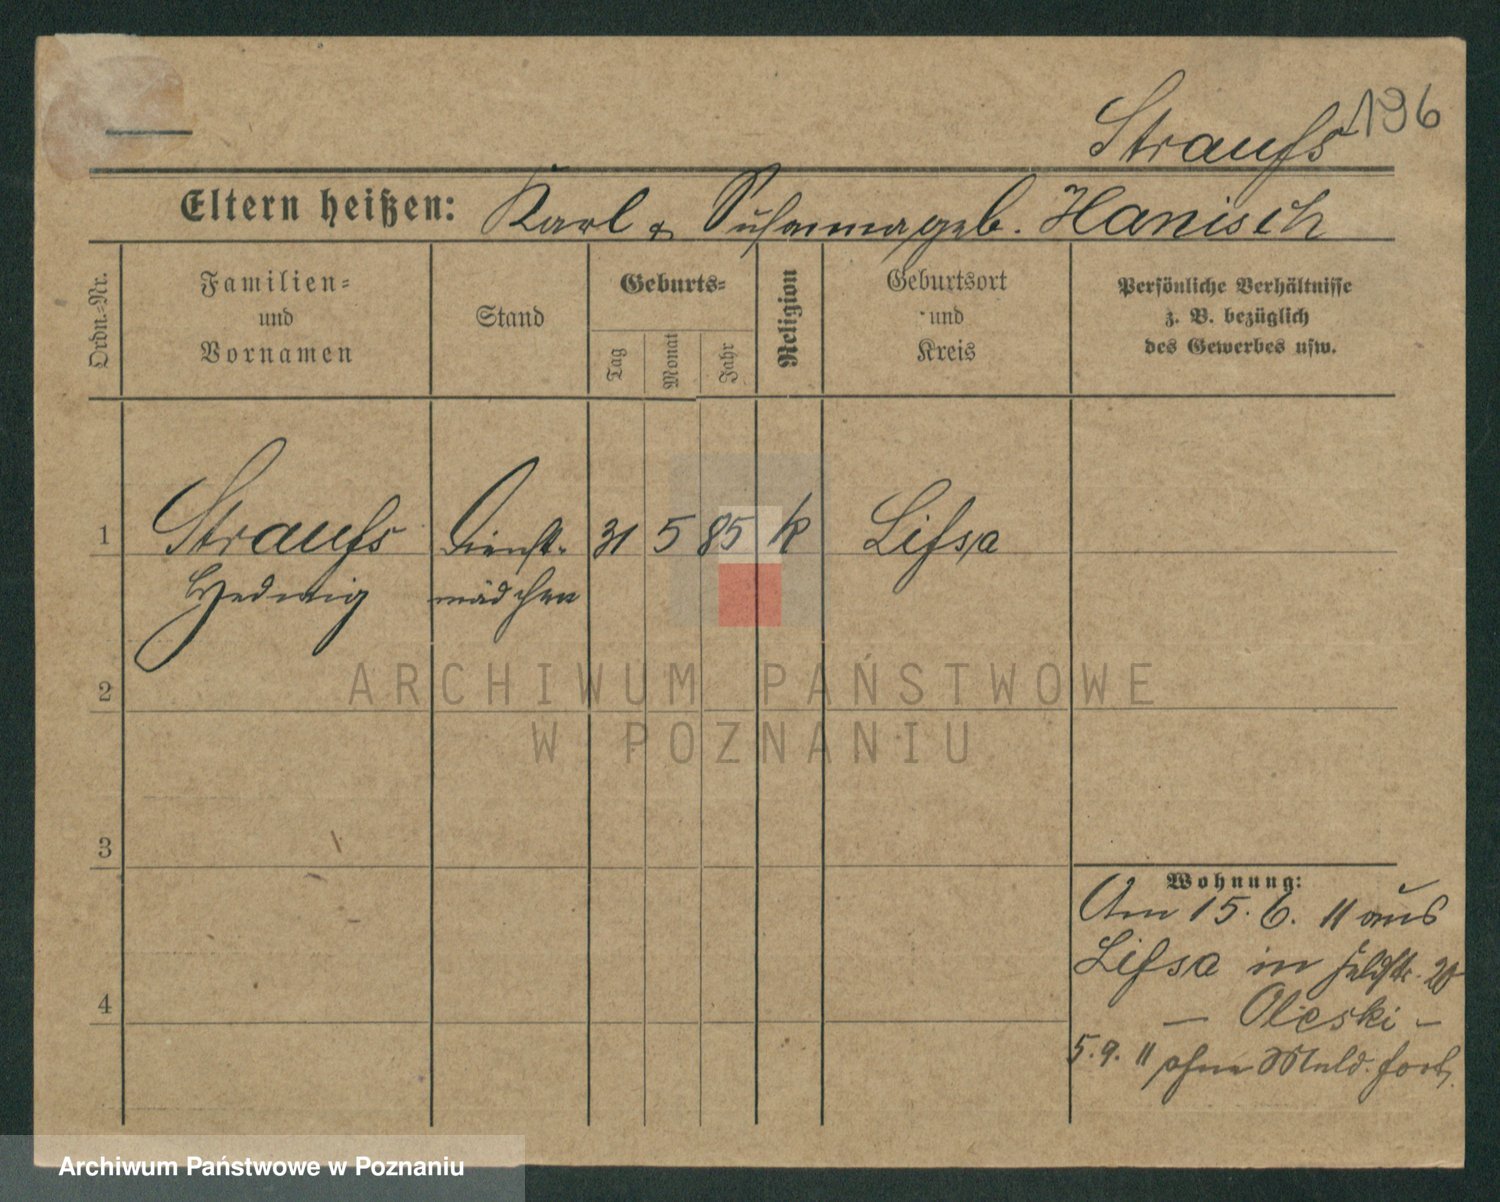 Strauſs 196
Eltern heißen: Karl & Susanna geb. Hanisch
Ordn.-Nr.
Familien-
und
Vornamen
Stand
Geburts-
Tag
Monat
Jahr
Religion
Geburtsort
und
Kreis
Persönliche Verhältnisse
z. B. bezüglich
des Gewerbes usw.
1 Strauſs Dienst- 31 5 85 k Liſsa
Hedwig mädchen
2
3
4
Wohnung:
Am 15. 6. 11 aus
Liſsa in Feldstr. 20
— Oleski —
5. 9. 11 ohne Meld. fort.
ARCHIWUM PAŃSTWOWE
W POZNANIU
Archiwum Państwowe w Poznaniu